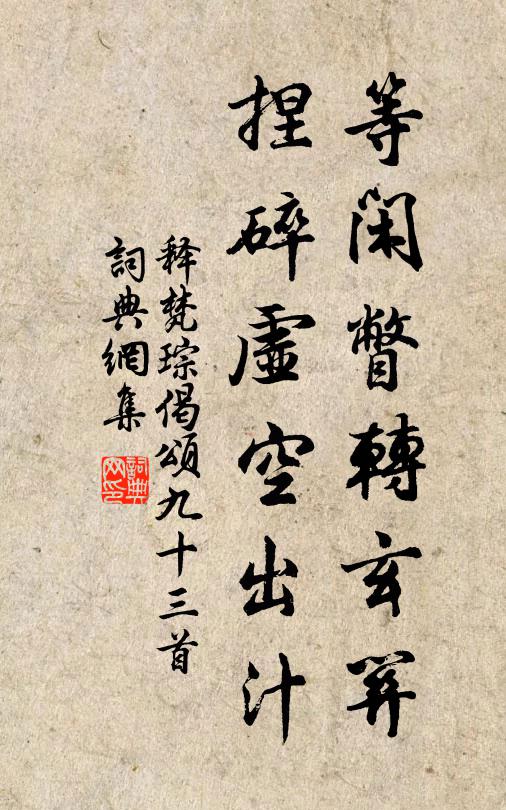 等閑瞥轉玄關
捏碎虛空出汁
释梵琮偈頌九十三首
詞典網集
詞典网印